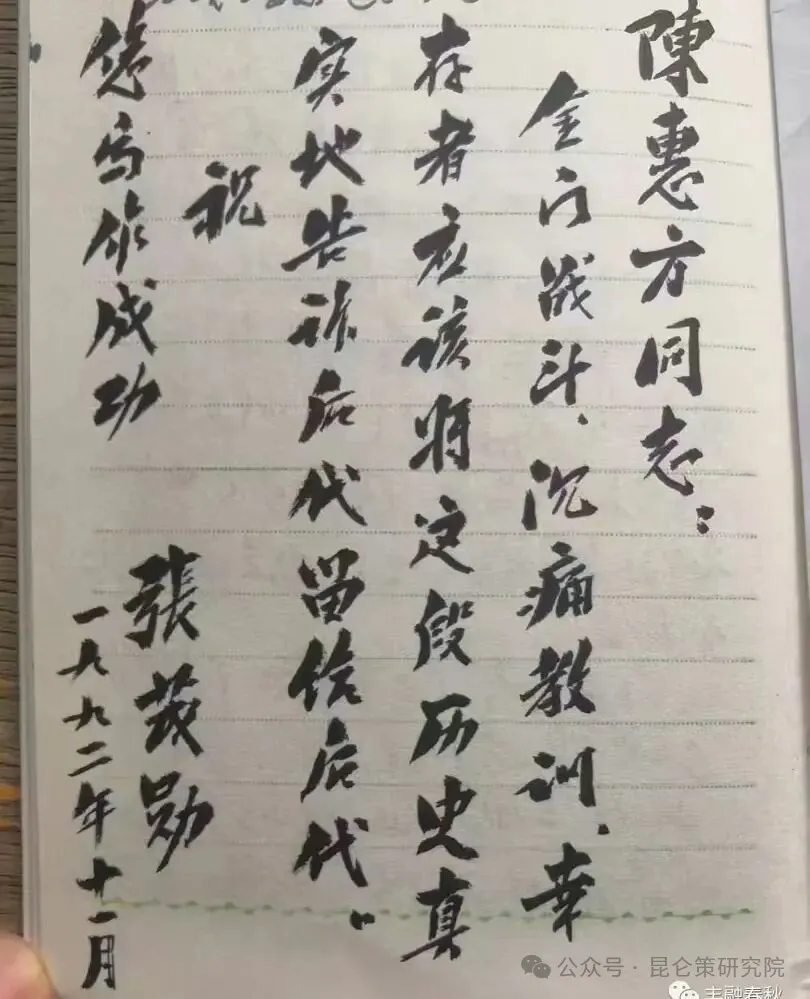 陳惠方同志：
金门战斗、沉痛教训、幸
存者应该将这段历史真
实地告诉后代留给后代。
祝
您写作成功
張茂勋
一九九二年十一月
公众号·昆仑策研究院
丰融春秋